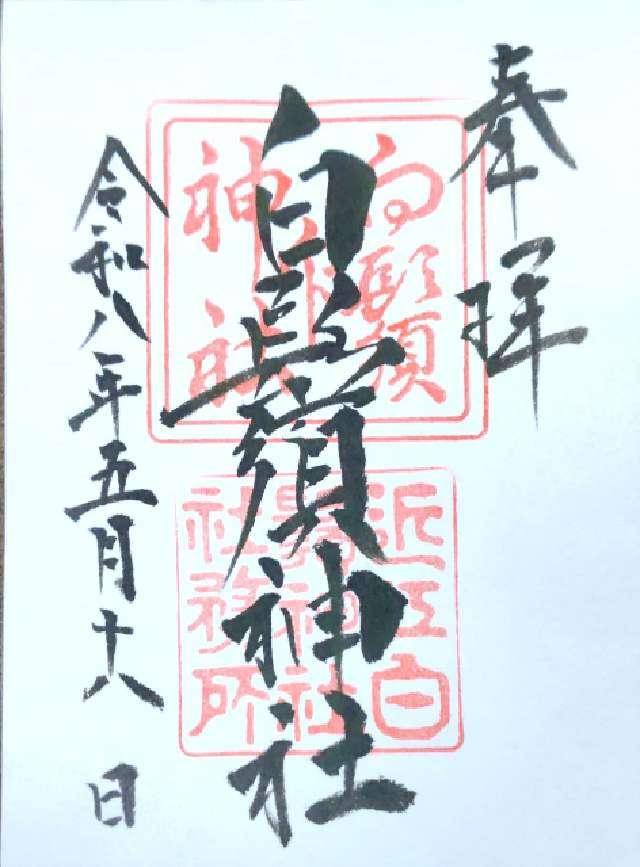 奉拝
白鬚神社
令和八年五月十八日
白鬚
神社
近江白
鬚神社
社務所